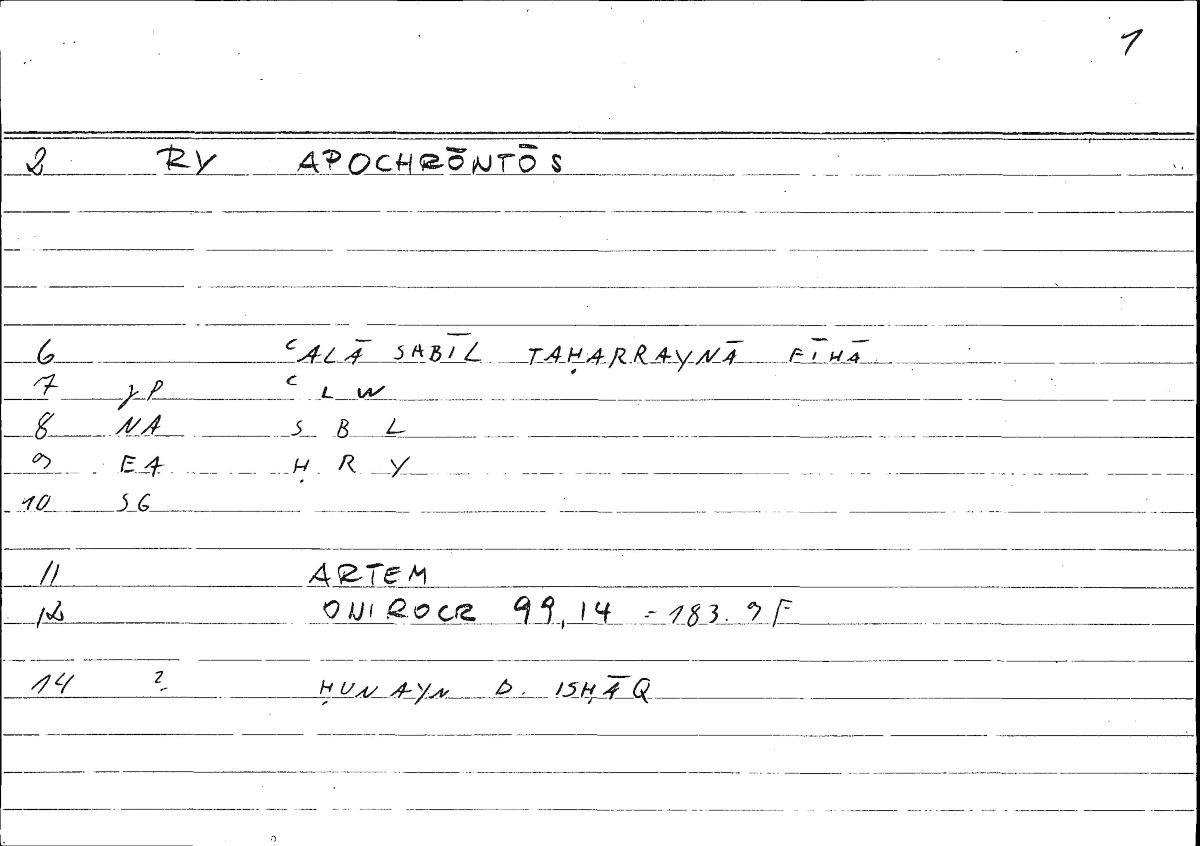 1
2 RY APOCHRŌNTŌS
6 ᶜALĀ SABĪL TAḤARRAYNĀ FĪHĀ
7 ᶜ L W
8 NA S B L
9 EA Ḥ R Y
10 SG
11 ARTEM
12 ONIROCR 99,14 = 183.9 F
14 ? ḤUNAYN B. ISḤĀQ